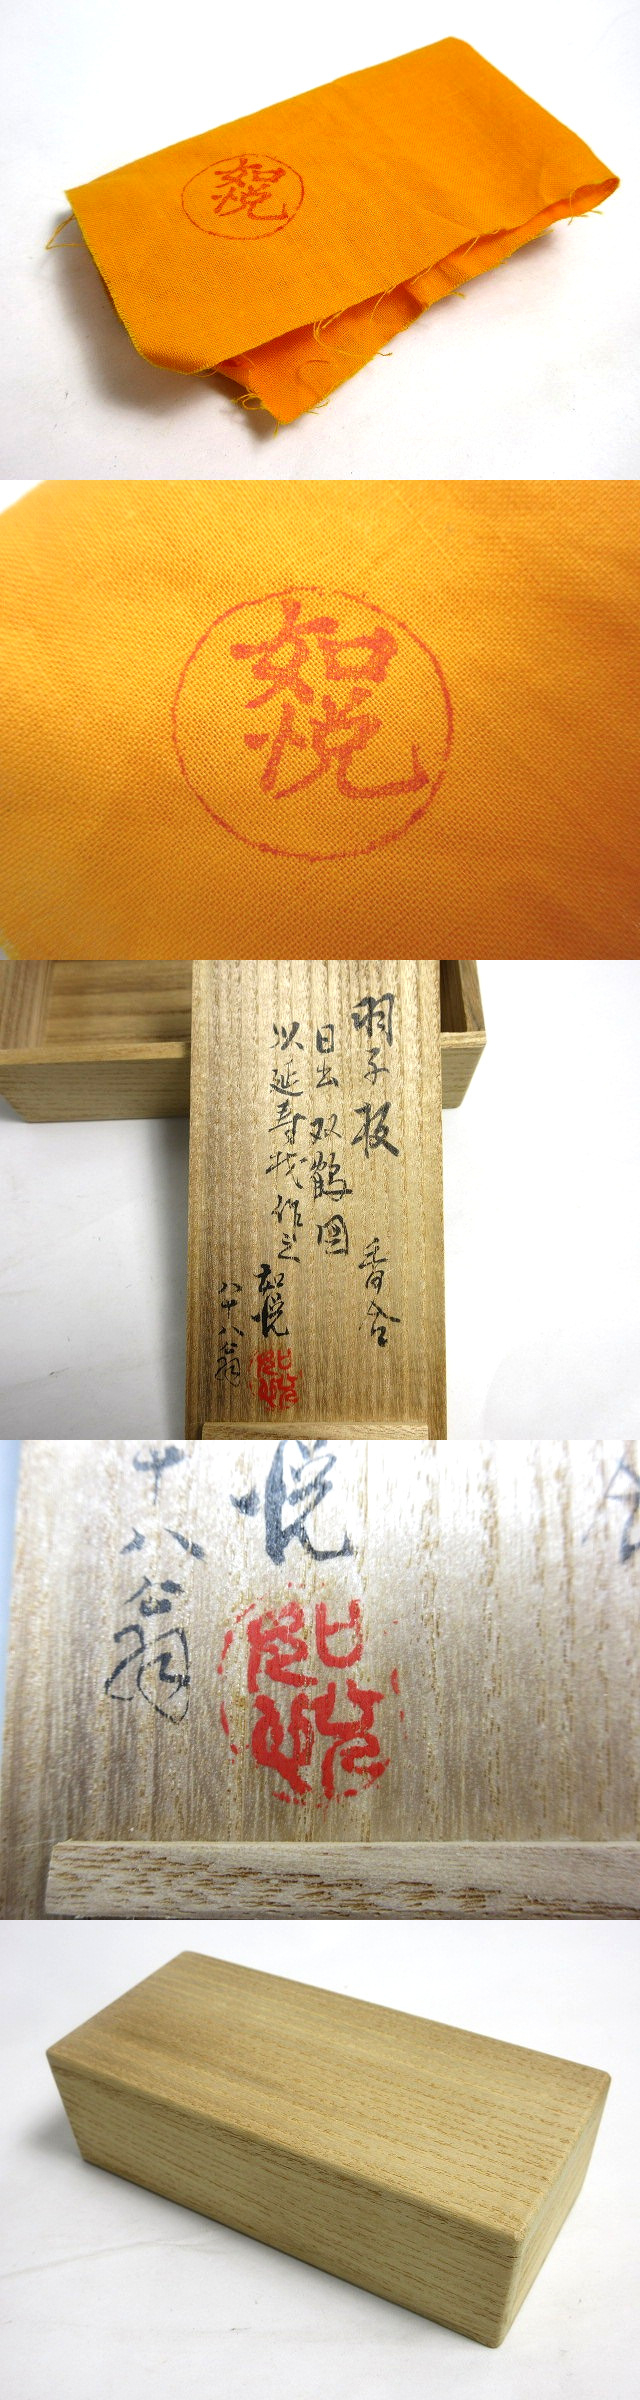 如
悦
如
悦
羽子板
香合
日出双鶴図
以延寿技作之
如悦
八十八翁
悦
十八翁